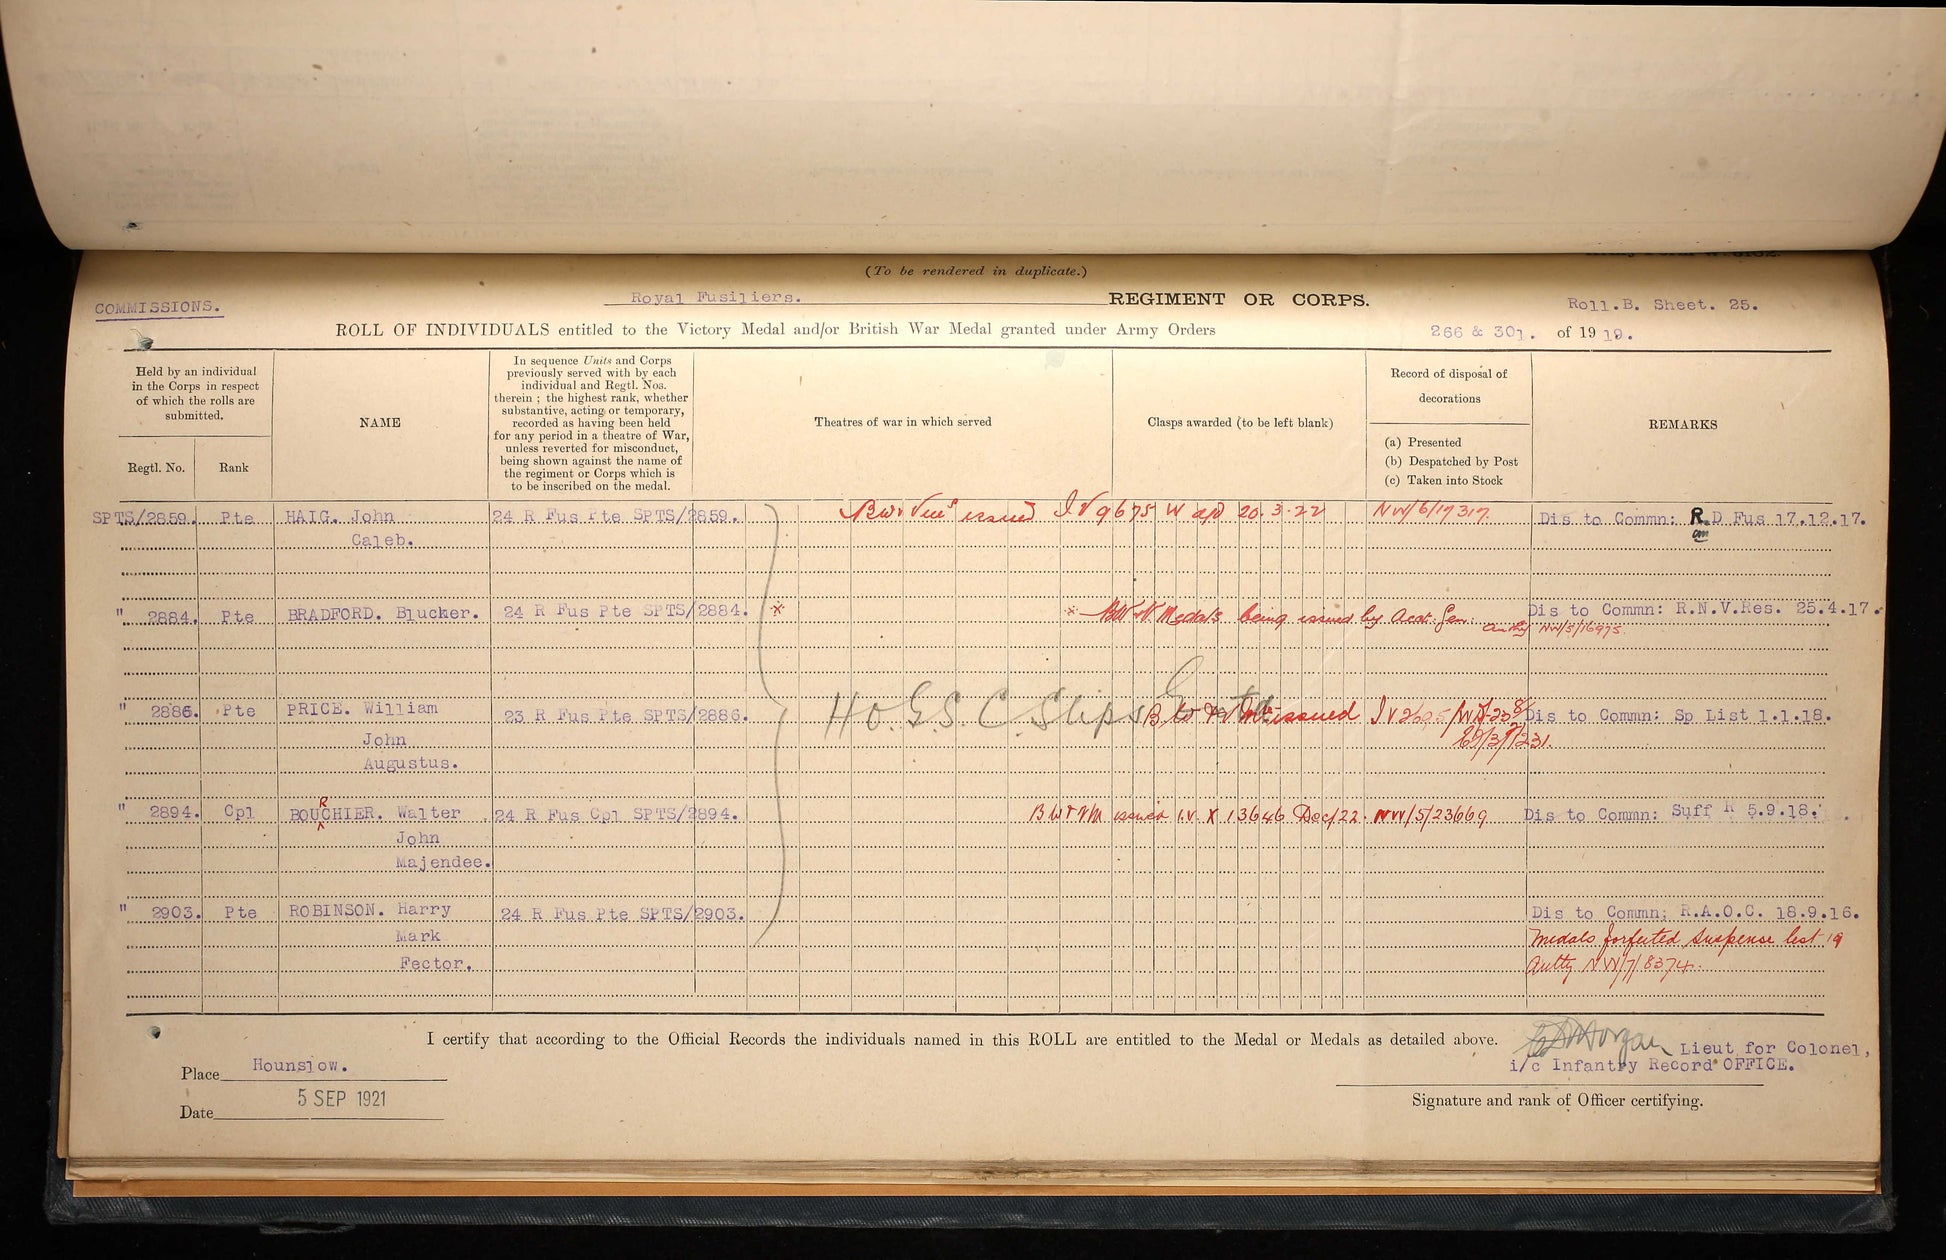 (To be rendered in duplicate.)
COMMISSIONS. Royal Fusiliers. REGIMENT OR CORPS. Roll.B. Sheet. 25.
ROLL OF INDIVIDUALS entitled to the Victory Medal and/or British War Medal granted under Army Orders 266 & 301. of 19 19.
Held by an individual
in the Corps in respect
of which the rolls are
submitted.
Regtl. No. Rank
NAME
In sequence Units and Corps
previously served with by each
individual and Regtl. Nos.
therein ; the highest rank, whether
substantive, acting or temporary,
recorded as having been held
for any period in a theatre of War,
unless reverted for misconduct,
being shown against the name of
the regiment or Corps which is
to be inscribed on the medal.
Theatres of war in which served
Clasps awarded (to be left blank)
Record of disposal of
decorations
(a) Presented
(b) Despatched by Post
(c) Taken into Stock
REMARKS
SPTS/2859. Pte HAIG. John 24 R Fus Pte SPTS/2859. issued IV 9675 20.3.22 NW/6/17317. Dis to Commn: R.D Fus 17.12.17.
Caleb.
" 2884. Pte BRADFORD. Blucker. 24 R Fus Pte SPTS/2884. * * BW & V. Medals being issued by Acct. Gen. Dis to Commn: R.N.V.Res. 25.4.17.
Authy NW/5/16975.
" 2886. Pte PRICE. William 23 R Fus Pte SPTS/2886. H.O.G.S.C. Slips issued Dis to Commn: Sp List 1.1.18.
John
Augustus.
R
" 2894. Cpl BOUCHIER. Walter 24 R Fus Cpl SPTS/2894. BW & VM issued I.V. X 13646 Dec/22. NW/5/23669 Dis to Commn: Suff R 5.9.18.
John
Majendee.
" 2903. Pte ROBINSON. Harry 24 R Fus Pte SPTS/2903. Dis to Commn: R.A.O.C. 18.9.16.
Mark Medals forfeited Suspense list 19
Fector. Autty NW/7/8374.
I certify that according to the Official Records the individuals named in this ROLL are entitled to the Medal or Medals as detailed above.
Morgan Lieut for Colonel,
i/c Infantry Record OFFICE.
Place Hounslow.
Date 5 SEP 1921
Signature and rank of Officer certifying.